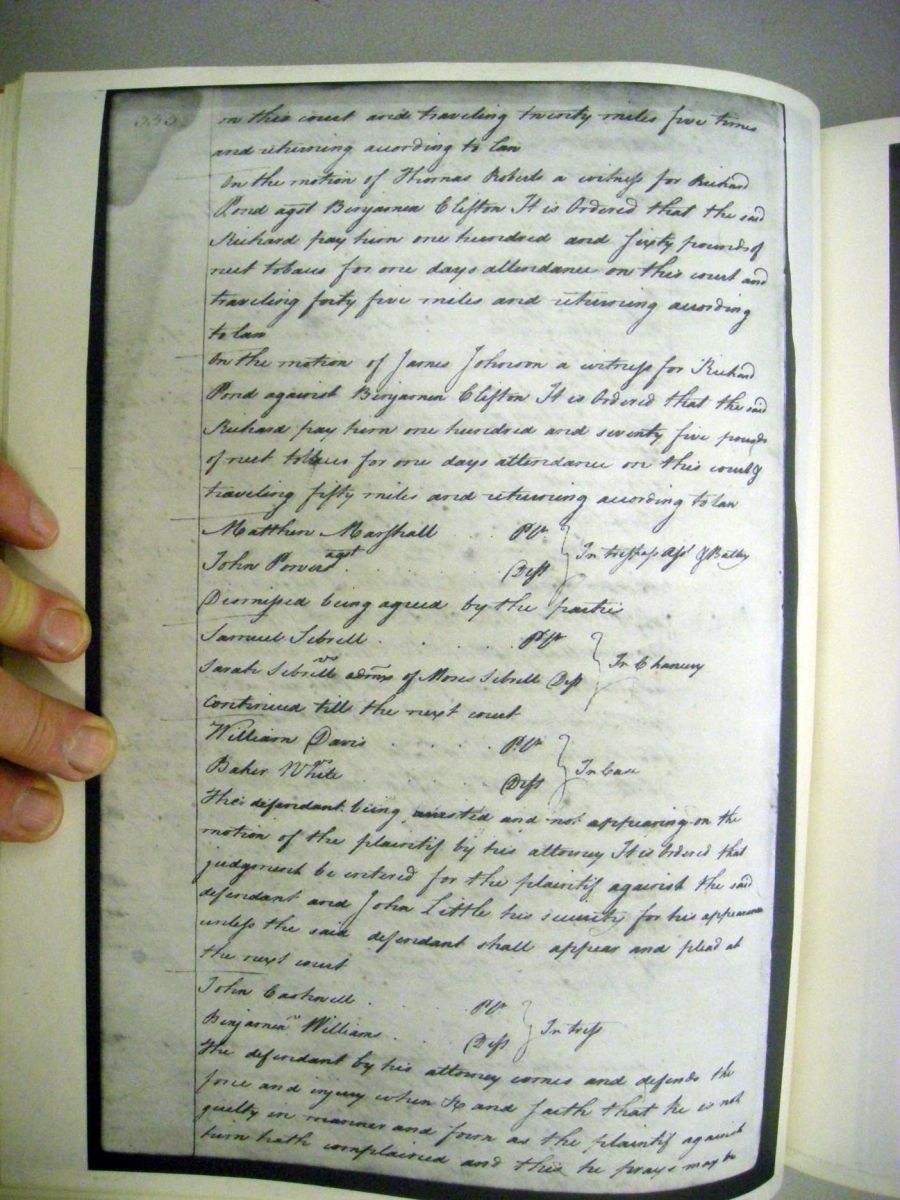 on this court and traveling twenty miles five times
and returning according to law
On the motion of Thomas Roberts a witness for Richard
Pond agst Benjamin Clifton It is Ordered that the said
Richard pay him one hundred and sixty pounds of
neet tobacco for one days attendance on this court and
traveling forty five miles and returning according
to law
On the motion of James Johnson a witness for Richard
Pond against Benjamin Clifton It is Ordered that the said
Richard pay him one hundred and seventy five pounds
of neet tobacco for one days attendance on this court &
traveling fifty miles and returning according to law
Matthew Marshall Pltf
agst In trespass asst & Battry
John Powers Deft
Dismissed being agreed by the parties
Samuel Sebrell Pltf
vs In Chancery
Sarah Sebrell admx of Moses Sebrell Deft
Continued till the next court
William Davis Pltf
vs In Case
Baker White Deft
The defendant being arrested and not appearing on the
motion of the plaintif by his attorney It is Ordered that
judgment be entered for the plaintif against the said
defendant and John Little his security for his appearance
unless the said defendant shall appear and plead at
the next court
John Cashwell Pltf
vs In tress
Benjamin Williams Deft
The defendant by his attorney comes and defends the
force and injury when &c and saith that he is not
guilty in manner and form as the plaintif against
him hath complained and this he prays may be